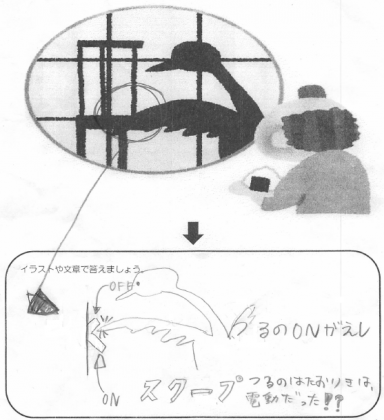 イラストや文章で答えましょう。
OFF
つるのONがえし
ON
スクープ つるのはたおりきは、
電動だった!!?